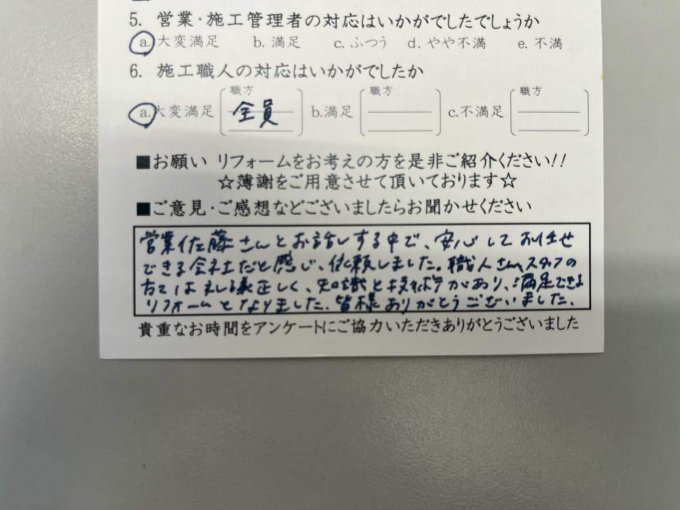 5. 営業・施工管理者の対応はいかがでしたでしょうか
a. 大変満足 b. 満足 c. ふつう d. やや不満 e. 不満
6. 施工職人の対応はいかがでしたか
職方 職方 職方
a. 大変満足 全員 b. 満足 c. 不満足
■お願い リフォームをお考えの方を是非ご紹介ください!!
☆薄謝をご用意させて頂いております☆
■ご意見・ご感想などございましたらお聞かせください
営業佐藤さんとお話しする中で、安心してお任せ
できる会社だと感じ、依頼しました。職人さん、スタッフの
方々は礼儀正しく、知識と技術があり、満足できる
リフォームとなりました。皆様ありがとうございました。
貴重なお時間をアンケートにご協力いただきありがとうございました